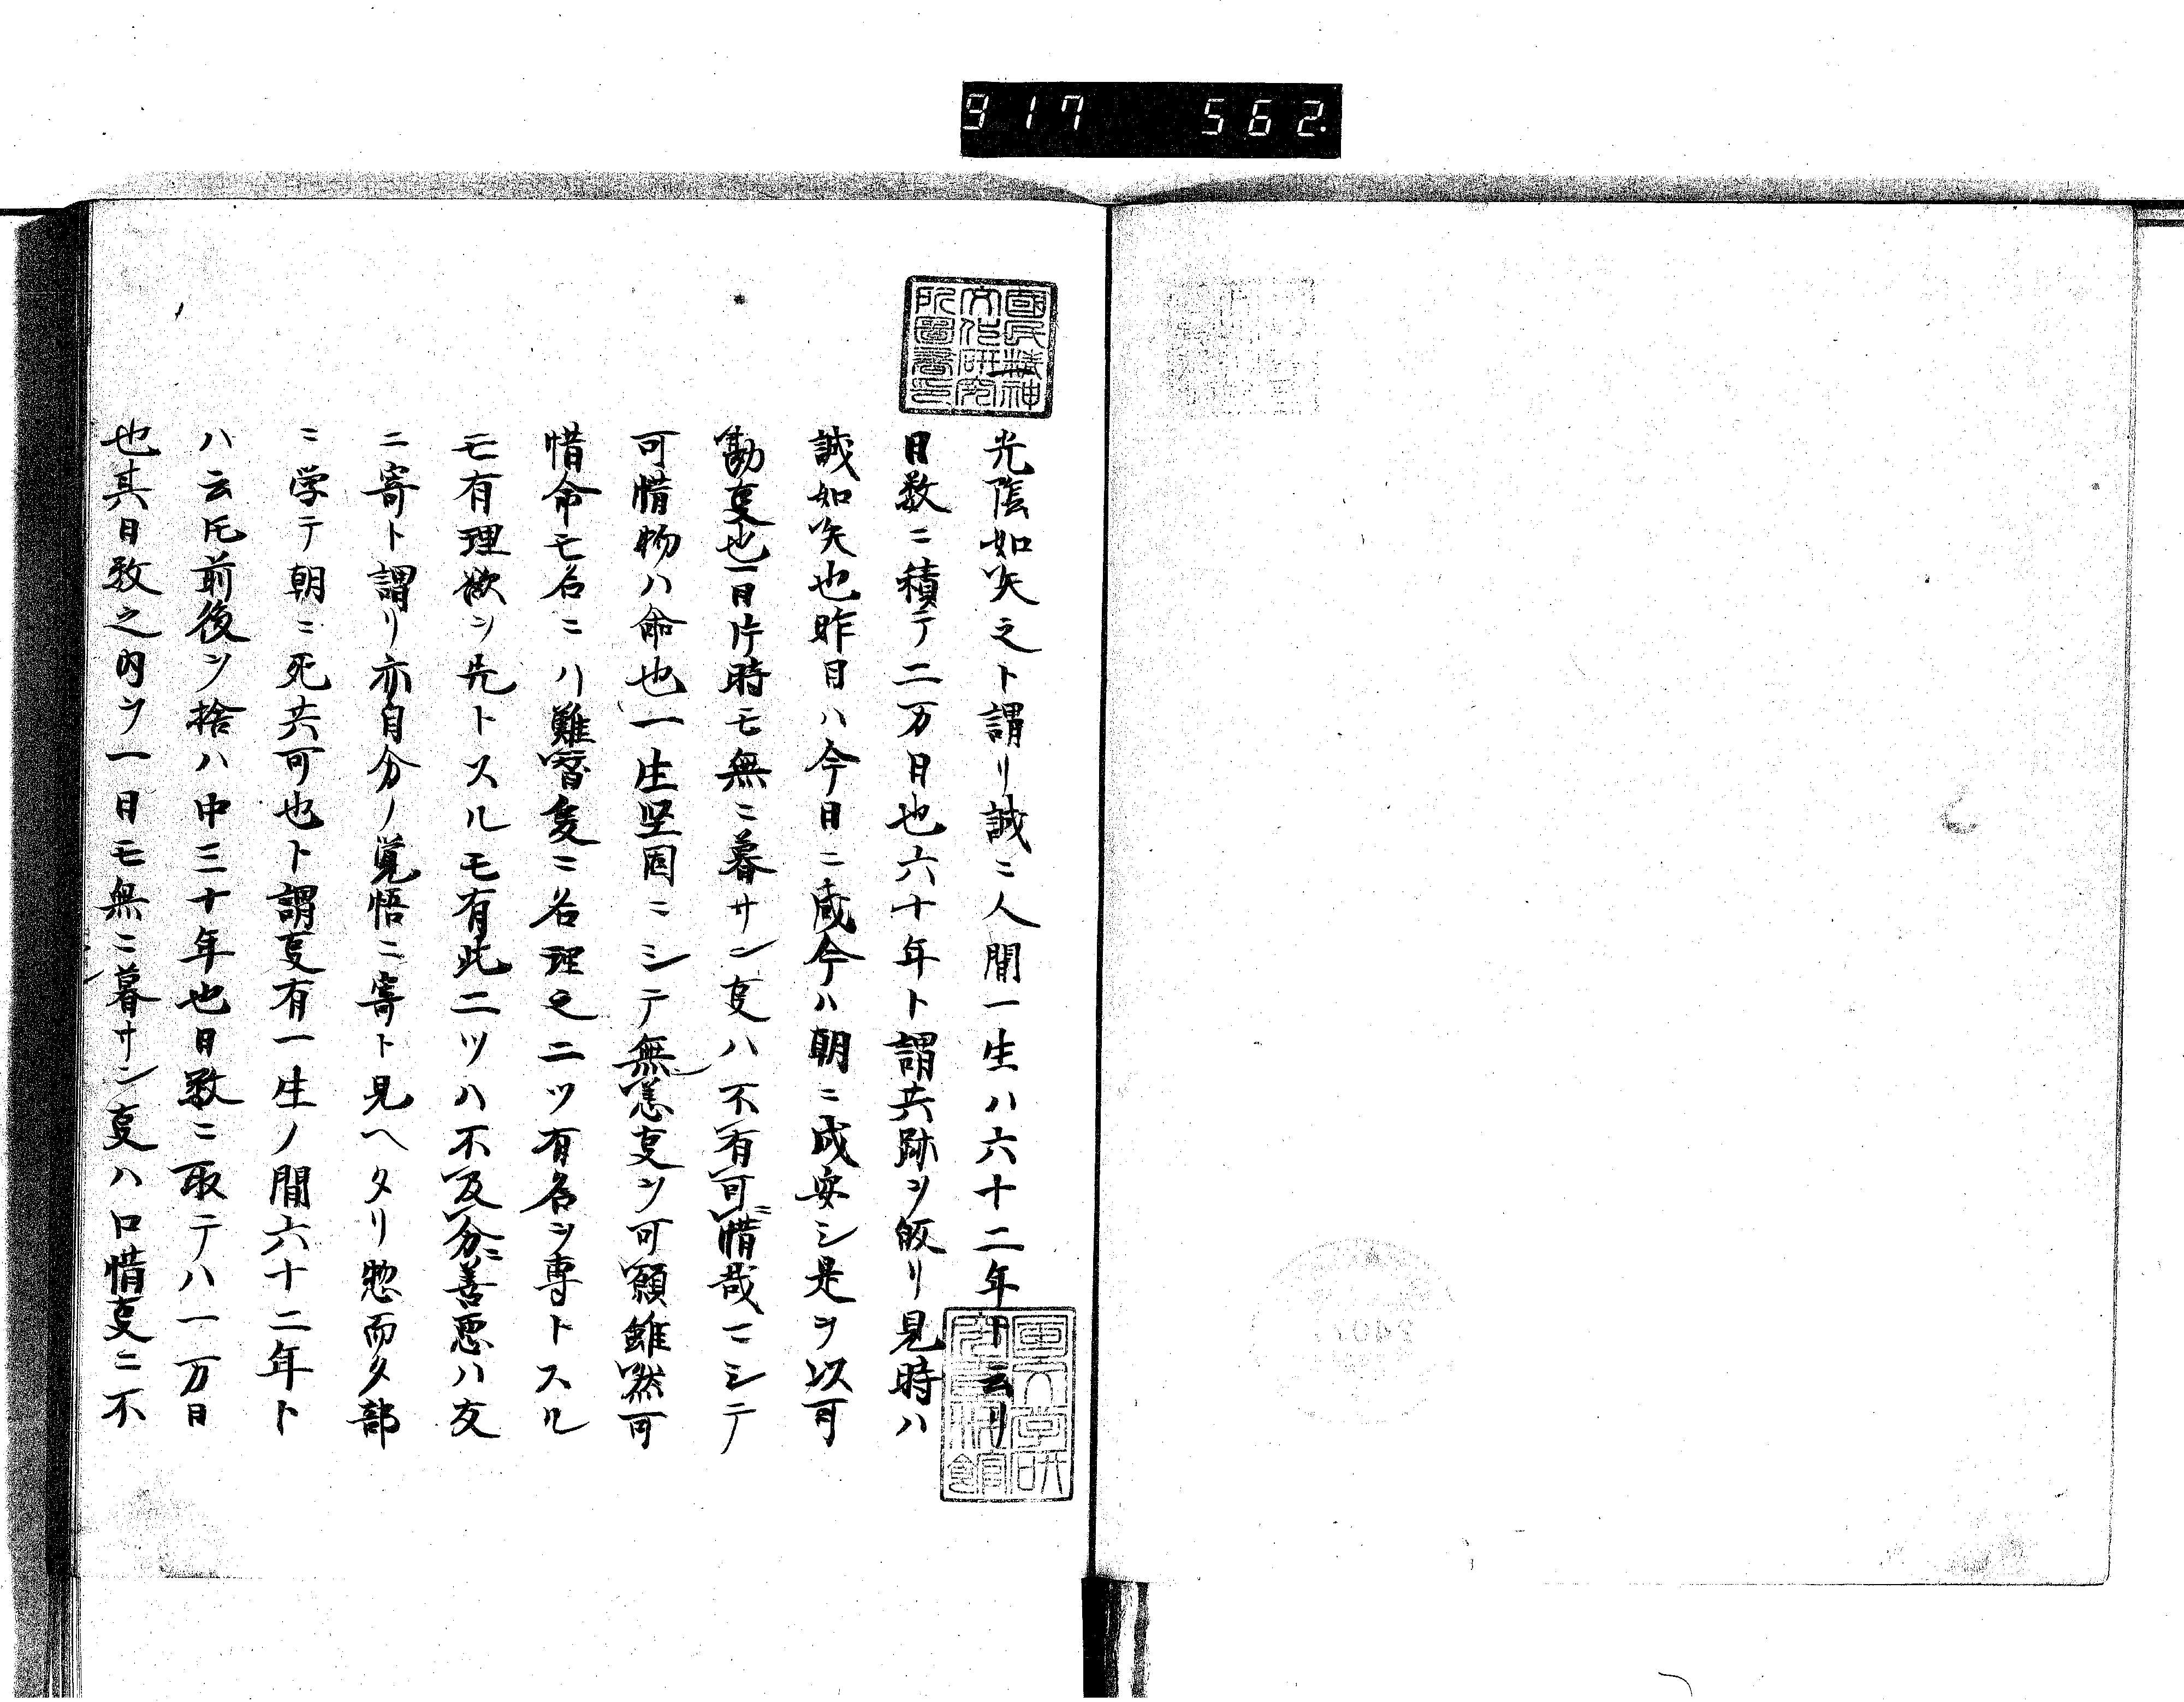 917 562.
國民精神
文化研究
所圖書印
光陰如矢之ト謂リ誠ニ人間一生ハ六十二年ト云リ
日数ニ積テ二万日也六十年ト謂共跡ヲ皈リ見時ハ
誠如矢也昨日ハ今日ニ成今ハ朝ニ成安シ是ヲ以可
勘叓也一日片時モ無ニ暮サン叓ハ不有可惜哉ニシテ
可惜物ハ命也一生堅固ニシテ無恙叓ヲ可願雖然可
惜命モ名ニハ難替爰ニ名理之二ツ有名ヲ専トスル
モ有理欲ヲ先トスルモ有此二ツハ不及分善悪ハ友
ニ寄ト謂リ亦自分ノ覚悟ニ寄ト見ヘタリ惣而夕部
ニ学テ朝ニ死共可也ト謂叓有一生ノ間六十二年ト
ハ云氐前後ヲ捨ハ中三十年也日数ニ取テハ一万日
也其日数之内ヲ一日モ無ニ暮サン叓ハ口惜叓ニ不